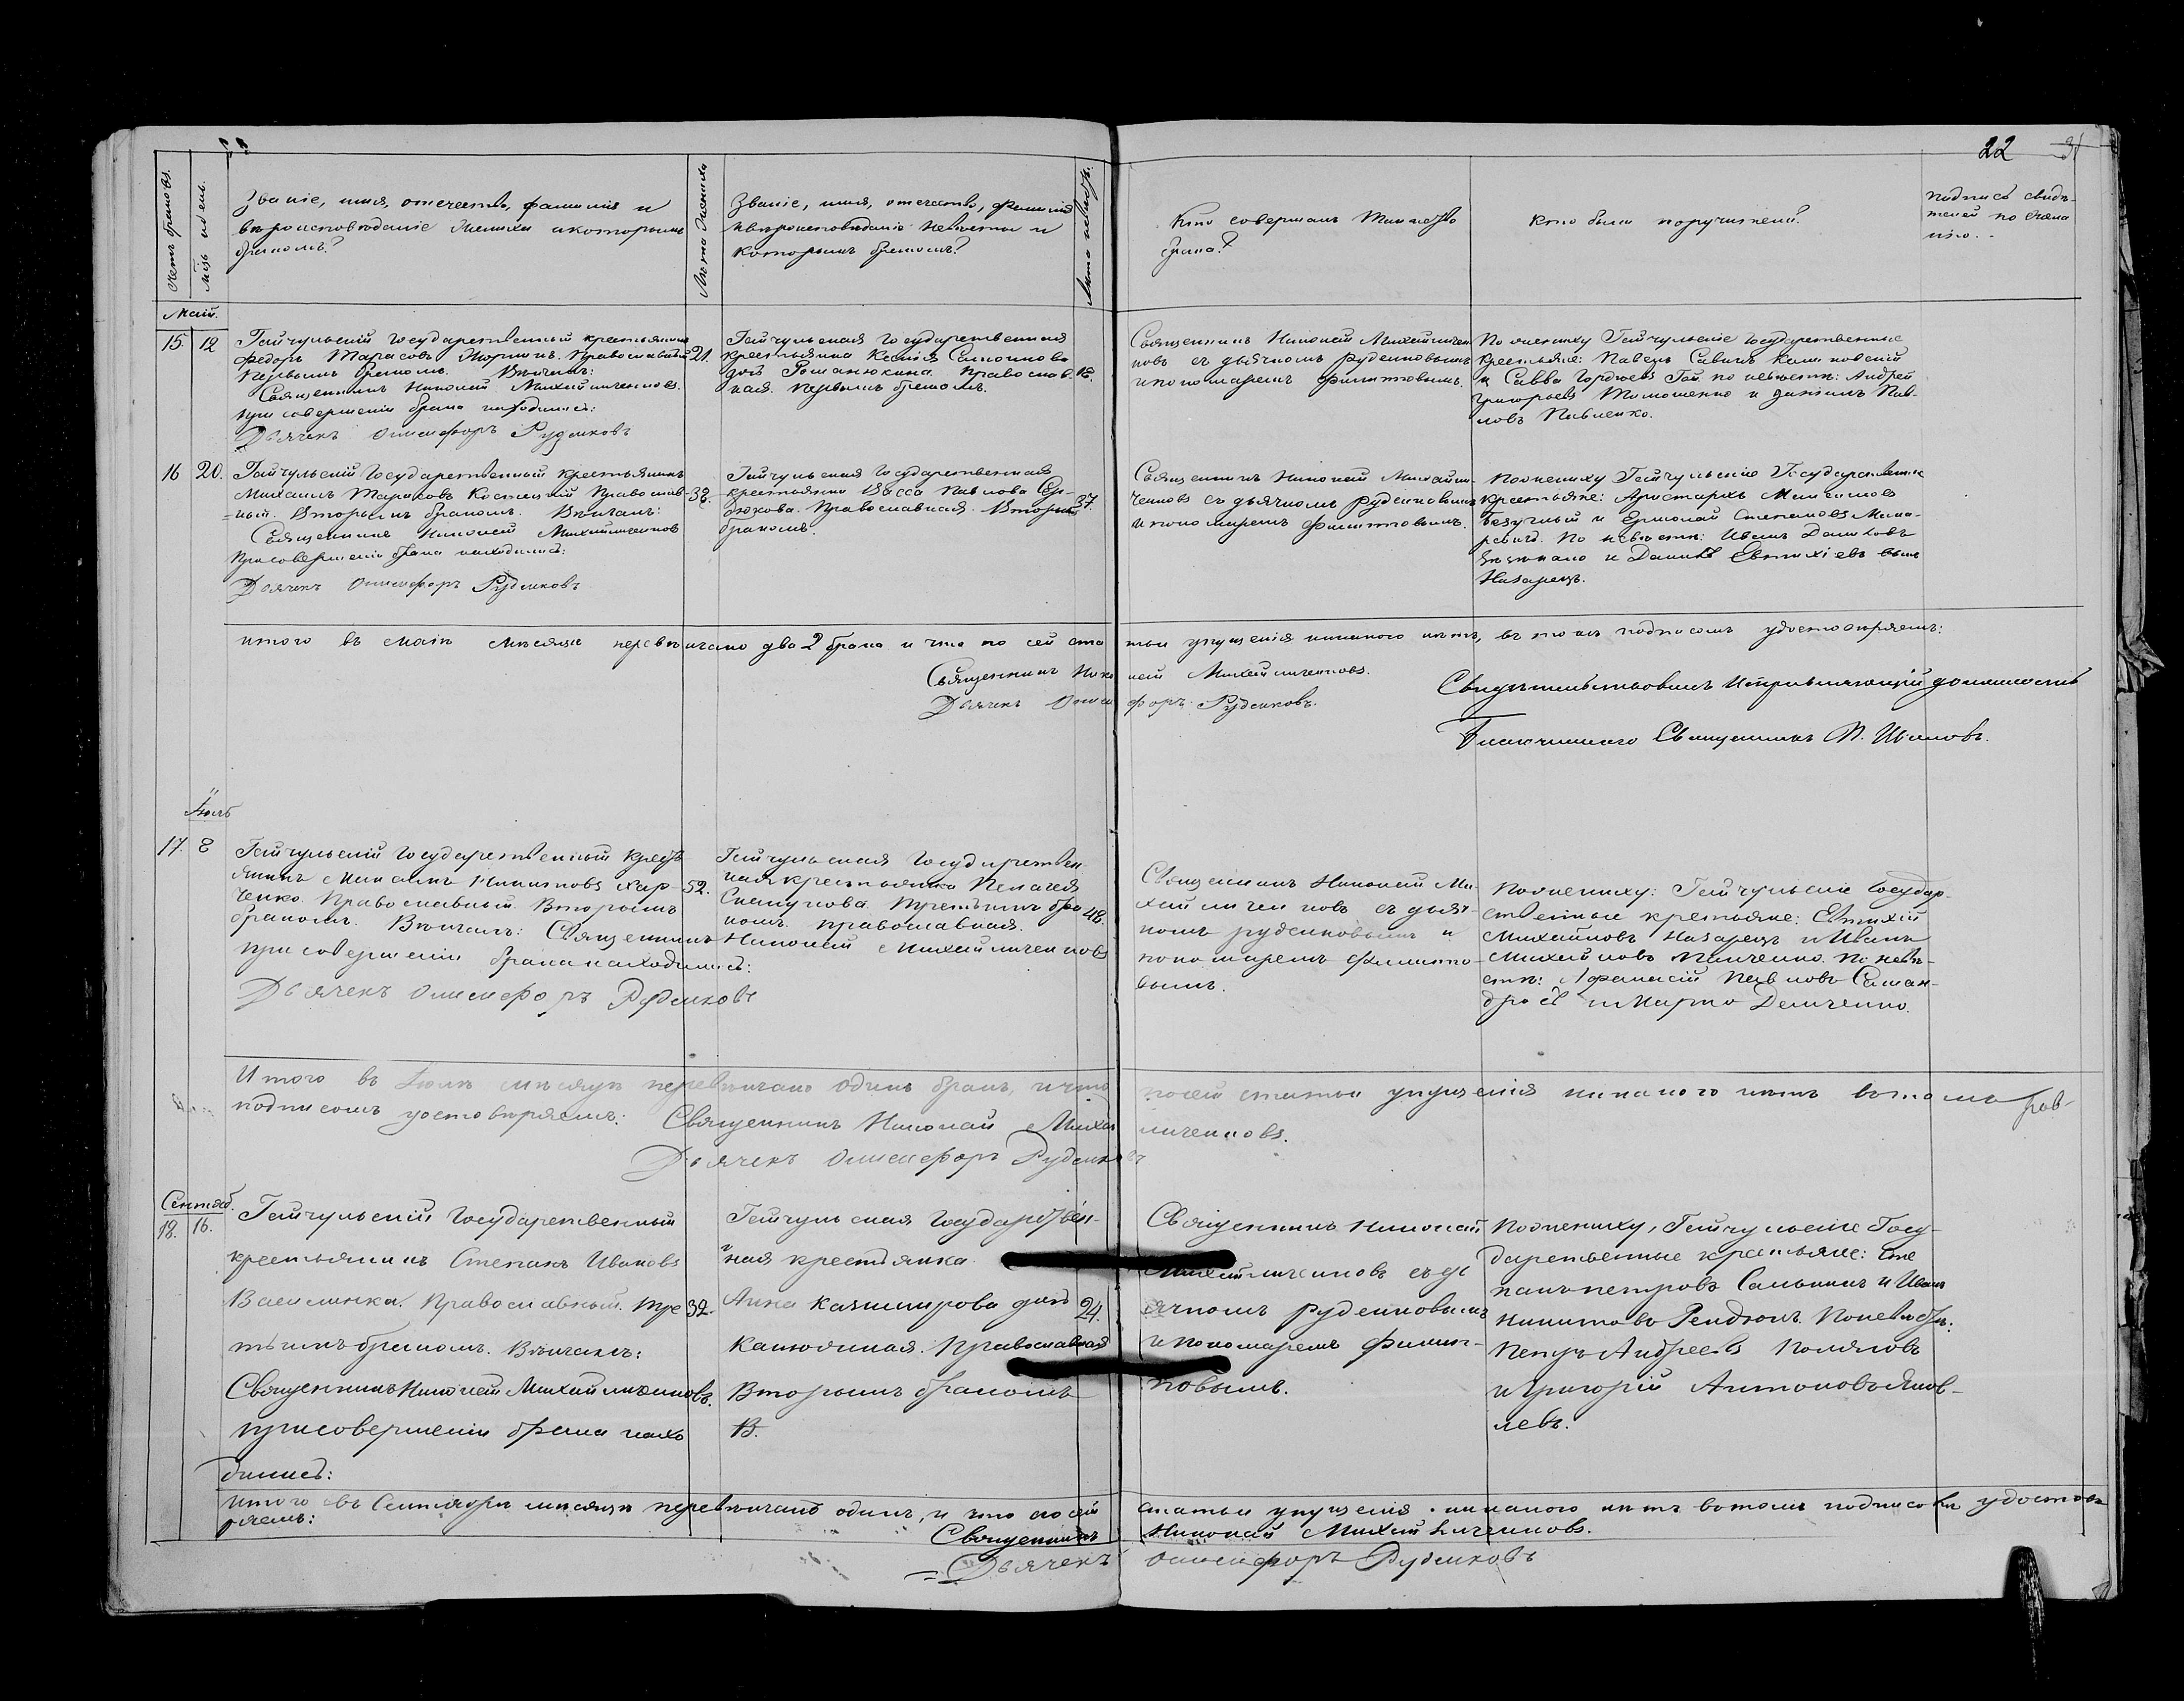 22
Счетъ браковъ.
Мѣс. и день.
Званіе, имя, отечество, фамилія и
вѣроисповѣданіе жениха и которымъ
бракомъ?
Лѣта жениха
Званіе, имя, отечество, фамилія
и вѣроисповѣданіе невѣсты и
которымъ бракомъ?
Лѣта невѣсты.
Кто совершалъ таинство
брака?
Кто были поручители?
Подпись свидѣ-
телей по
Маій.
15. 12
Гайчульскій государственный крестьянинъ
Федоръ Тарасовъ Православный
Первымъ бракомъ. Вѣнчалъ:
Священникъ Николай Михайличенковъ.
При совершеніи брака находились:
Дьячекъ Онисифоръ Руденковъ
21.
Гайчульская государственная
крестьянка Ксенія Симонова
дочь Романюкина. Православ-
ная. Первымъ бракомъ.
18.
Священникъ Николай Михайличен
ковъ съ дьячкомъ Руденковымъ
и пономаремъ Филипповымъ.
По жениху Гайчульскіе государственные
крестьяне: Павелъ Савинъ Калиновскій
и Савва Гордѣевъ Гай по невѣстѣ: Андрей
Григорьевъ Тимошенко и Данiилъ Пав-
ловъ Павленко.
16 20.
Гайчульскій государственный крестьянинъ
Михаилъ Тарасовъ Костецкій Православ-
ный. Вторымъ бракомъ. Вѣнчалъ:
Священникъ Николай Михайличенковъ
При совершеніи брака находились:
Дьячекъ Онисифоръ Руденковъ
32.
Гайчульская государственная
крестьянка Васса Павлова Сер-
дюкова. Православная. Вторымъ
бракомъ.
37.
Священникъ Николай Михайли-
ченковъ съ дьячкомъ Руденковымъ
и пономаремъ Филипповымъ.
По жениху Гайчульскіе Государственные
крестьяне: Аристархъ
и Ермолай Степановъ Мака-
ревичъ. По невѣстѣ: Иванъ Даниловъ
и Даниилъ Евтихіевъ сынъ
Назарецъ.
Итого въ маіѣ мѣсяцѣ перевѣнчано два 2 брака и что по сей ста тьи упущенія никакого нѣтъ, въ томъ подписомъ удостовѣряемъ:
Священникъ Нико лай Михайличенковъ.
Дьячекъ Ониси форъ Руденковъ.
Свидѣтельствовалъ Исправляющій должность
Благочиннаго Священникъ П. Ивановъ.
Іюль
17. 8
Гайчульскій государственный кресть-
янинъ Михаилъ Никитовъ Хар-
ченко. Православный. Вторымъ
бракомъ. Вѣнчалъ: Священникъ Николай Михайличенковъ
при совершеніи брака находились:
Дьячекъ Онисифоръ Руденковъ
52.
Гайчульская государствен-
ная крестьянка Пелагея
Третьимъ бра
комъ. Православная.
48.
Священникъ Николай Ми-
хайличенковъ съ дьяч-
комъ Руденковымъ и
пономаремъ Филиппо-
вымъ.
По жениху: Гайчульскіе Государ-
ственные крестьяне: Евтихій
Михайловъ Назарецъ и Иванъ
Михайловъ Панченко. По невѣ-
стѣ: Афанасій Павловъ Саман-
дра и Марко Демченко.
Итого въ Іюлѣ мѣсяцѣ перевѣнчано одинъ бракъ, и что по сей статьи упущенія никакого нѣтъ въ томъ
подписомъ удостовѣряемъ: Священникъ Николай Михай личенковъ.
Дьячекъ Онисифоръ Руденковъ
Сентяб.
18. 16.
Гайчульскій Государственный
крестьянинъ Степанъ Ивановъ
Василинка. Православный. Тре
тьимъ бракомъ. Вѣнчалъ:
Священникъ Николай Михайличенковъ.
при совершеніи брака нахо
дились:
32.
Гайчульская Государствен-
ная крестьянка
Анна Казимирова дочь
Православная
Вторымъ бракомъ
В.
24.
Священникъ Николай
Михайличенковъ съ дь
ячкомъ Руденковымъ
и пономаремъ Филип-
повымъ.
По жениху, Гайчульскіе Госу-
дарственные крестьяне: Сте
панъ Петровъ и Иванъ
Никитовъ По невѣстѣ:
Петръ Андреевъ Поляковъ
и Григорій Антоновъ Яков-
левъ.
Итого въ Сентябрѣ мѣсяцѣ перевѣнчано одинъ, и что по сей статьи упущенія никакого нѣтъ въ томъ подписомъ удостовѣ
ряемъ:
Священникъ Николай Михайличенковъ.
Дьячекъ Онисифоръ Руденковъ